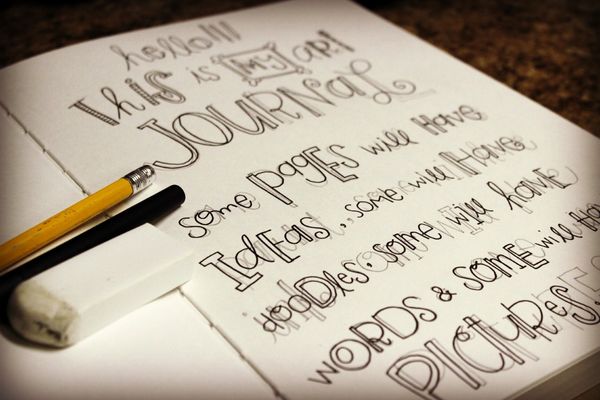 hello!!!
This is my art
JOURNAL
some pages will have
IDEAS, some will have
doodles, some will have
WORDS & some will ha
PICTURES.